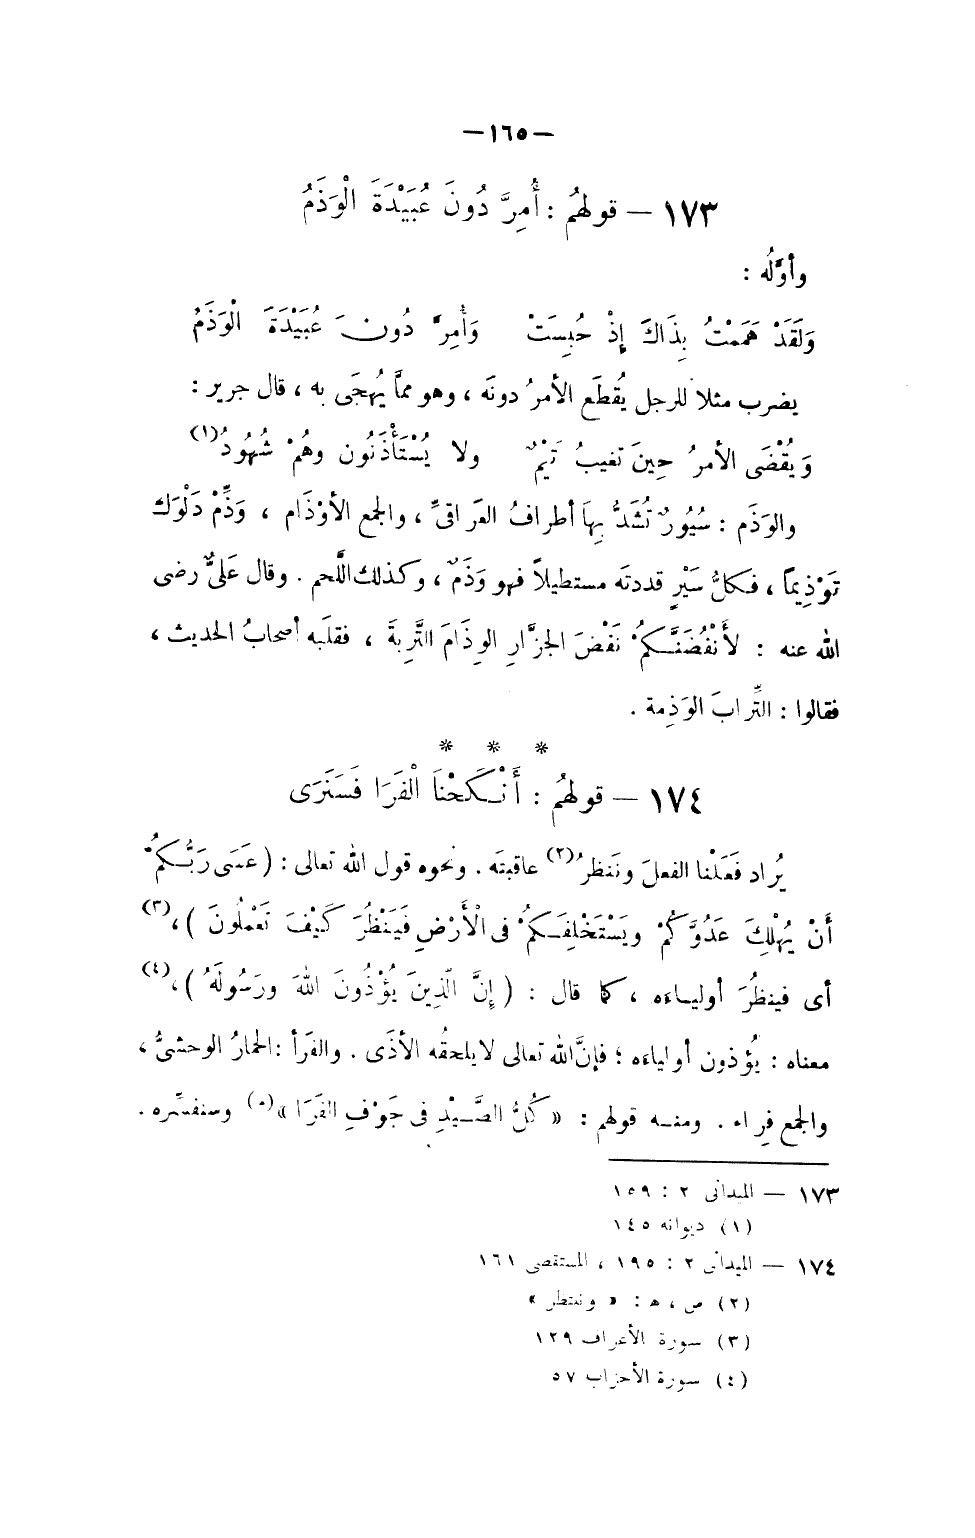 — ١٦٥ —
١٧٣ — قولهُم : أُمِرَّ دُونَ عُبَيْدَةَ الْوَذَمُ
وأوّلُه :
وَلَقَدْ هَمَمْتُ بِذَاكَ إِذْ حُبِسَتْ وَأُمِرَّ دُونَ عُبَيْدَةَ الْوَذَمُ
يضرب مثلا للرجل يُقطَع الأمرُ دونَه ، وهو ممَّا يُهجَى به ، قال جرير :
وَيُقْضَى الأمرُ حِينَ تَغيبُ تَيْمٌ ولا يُسْتَأْذَنُون وهُمْ شُهُودُ(١)
والوَذَم : سُيُورٌ تُشَدُّ بِهَا أطرافُ العَرَاقىِّ ، والجمع الأوْذَام ، وَذِّمْ دَلْوَك
تَوْذِيماً ، فكلُّ سَيْرٍ قددتَه مستطيلاً فهو وَذَمٌ ، وكذلك اللَّحم . وقال عَلىٌّ رضى
الله عنه : لأَنْفُضَنَّكُمْ نَفْضَ الجزَّارِ الوِذَامَ التَّرِبَةَ ، فقلَبه أصحابُ الحديث ،
فقالوا : التِّرابَ الوَذِمة .
* * *
١٧٤ — قولهُم : أَنْكَحْنَا الْفَرَا فَسَنَرَى
يُراد فَعَلْنا الفعلَ ونَنظرُ(٢) عاقبتَه . ونحوه قول الله تعالى : ( عَسَى رَبُّكُمْ
أَنْ يُهْلِكَ عَدُوَّكُمْ ويَسْتَخْلِفَكُمْ فى الْأَرْضِ فَيَنْظُرَ كَيْفَ تَعْمَلُونَ )،(٣)
أى فينظُرَ أولياءَه ، كما قال : ( إِنَّ الَّذِينَ يُؤْذُونَ اللهَ ورَسُولَهُ )،(٤)
معناه : يُؤذون أولياءَه ؛ فإنَّ الله تعالى لا يلحقُه الأذَى . والفَرَأ : الحمارُ الوحشىُّ ،
والجمع فِراء . ومنه قولهم : « كُلُّ الصَّيْدِ فى جَوْفِ الفَرَا »(٥) وسنفسِّره .
١٧٣ — الميدانى ٢ : ١٥٩
(١) ديوانه ١٤٥
١٧٤ — الميدانى ٢ : ١٩٥ ، المستقصى ١٦١
(٢) ص ، ه : « وننتظر »
(٣) سورة الأعراف ١٢٩
(٤) سورة الأحزاب ٥٧